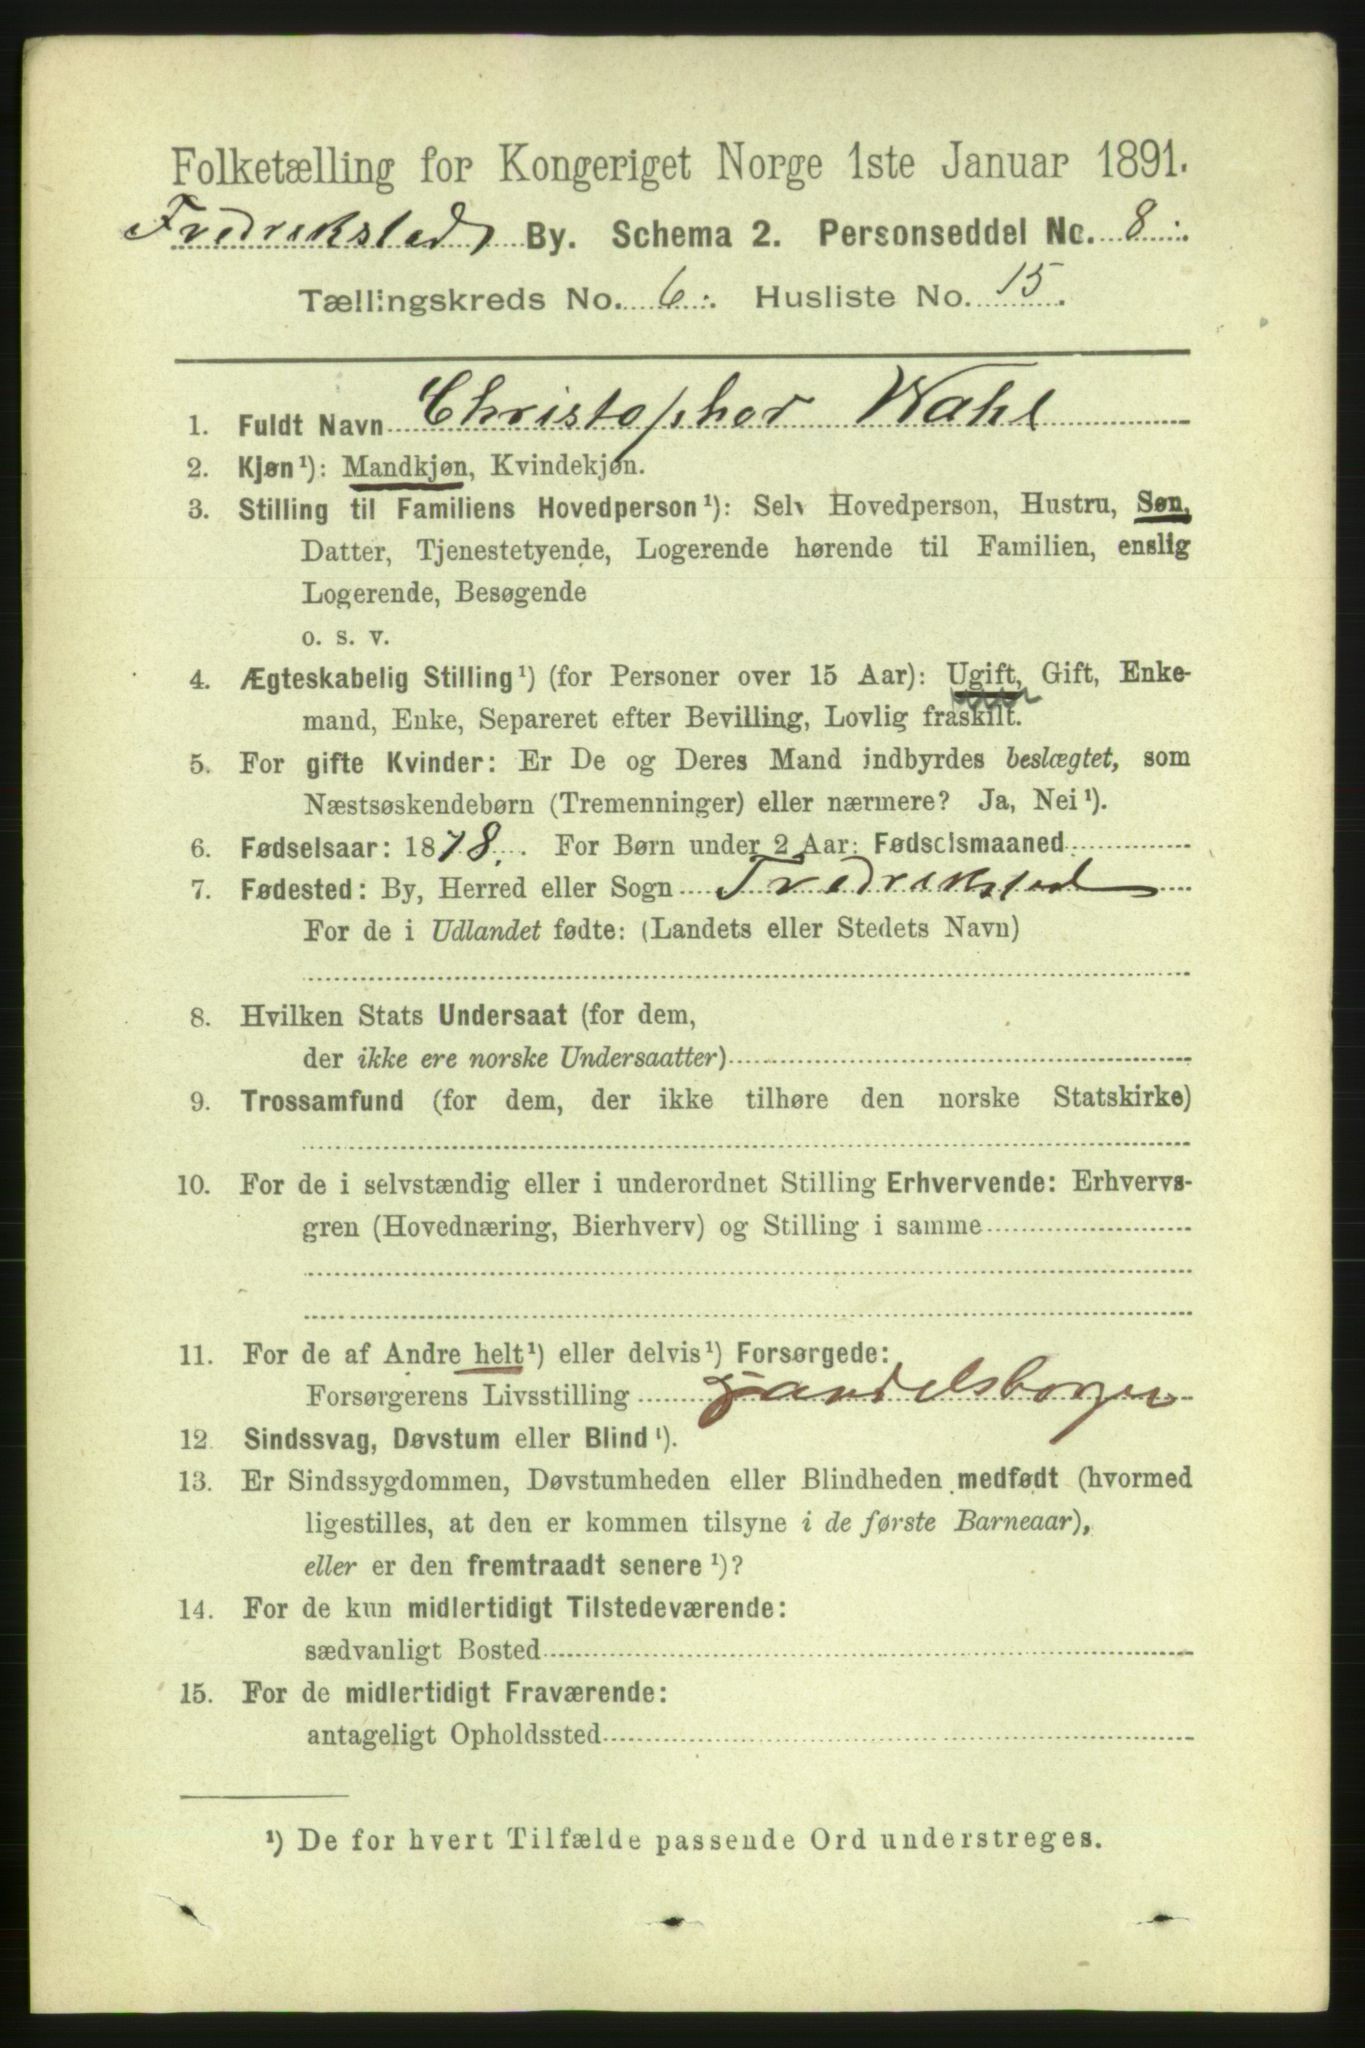 Folketælling for Kongeriget Norge 1ste Januar 1891.
Fredrikstad By. Schema 2. Personseddel No. 8.
Tællingskreds No. 6. Husliste No. 15.
1. Fuldt Navn Christopher Wahl
2. Kjøn¹): Mandkjøn, Kvindekjøn.
3. Stilling til Familiens Hovedperson¹): Selv Hovedperson, Hustru, Søn,
Datter, Tjenestetyende, Logerende hørende til Familien, enslig
Logerende, Besøgende
o. s. v.
4. Ægteskabelig Stilling¹) (for Personer over 15 Aar): Ugift, Gift, Enke-
mand, Enke, Separeret efter Bevilling, Lovlig fraskilt.
5. For gifte Kvinder: Er De og Deres Mand indbyrdes beslægtet, som
Næstsøskendebørn (Tremenninger) eller nærmere? Ja, Nei¹).
6. Fødselsaar: 1878. For Børn under 2 Aar: Fødselsmaaned
7. Fødested: By, Herred eller Sogn Fredrikstad
For de i Udlandet fødte: (Landets eller Stedets Navn)
8. Hvilken Stats Undersaat (for dem,
der ikke ere norske Undersaatter)
9. Trossamfund (for dem, der ikke tilhøre den norske Statskirke)
10. For de i selvstændig eller i underordnet Stilling Erhvervende: Erhvervs-
gren (Hovednæring, Bierhverv) og Stilling i samme
11. For de af Andre helt¹) eller delvis¹) Forsørgede:
Forsørgerens Livsstilling Handelsborger
12. Sindssvag, Døvstum eller Blind¹).
13. Er Sindssygdommen, Døvstumheden eller Blindheden medfødt (hvormed
ligestilles, at den er kommen tilsyne i de første Barneaar),
eller er den fremtraadt senere¹)?
14. For de kun midlertidigt Tilstedeværende:
sædvanligt Bosted
15. For de midlertidigt Fraværende:
antageligt Opholdssted
¹) De for hvert Tilfælde passende Ord understreges.